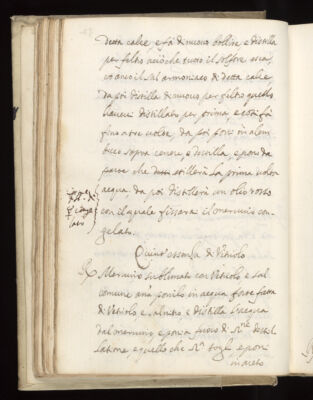 detta calce, e fà di nuovo bollire, e distilla
per feltro acciò che tutto il solfore esca,
et anco il sal armoniaco di detta calce,
da poi distilla di nuovo per feltro quello
havevi distillato per prima, e così fà
fin a tre volte, da poi poni in alem
bico sopra cenere, e distilla, e poni da
parte che detto stillerà la prima volta
acqua, da poi distillerà un olio rosso
con il quale fissarai il mercurio con
gelato.
Quint'essenza di Vetriolo
Mercurio sublimato con Vetriolo, e sal
comune ana ponilo in acqua forte fatta
di Vetriolo, e salnitro, e distilla l'acqua
dal mercurio, e poni a fuoco di
latione, e quello che togli, e poni
in aceto